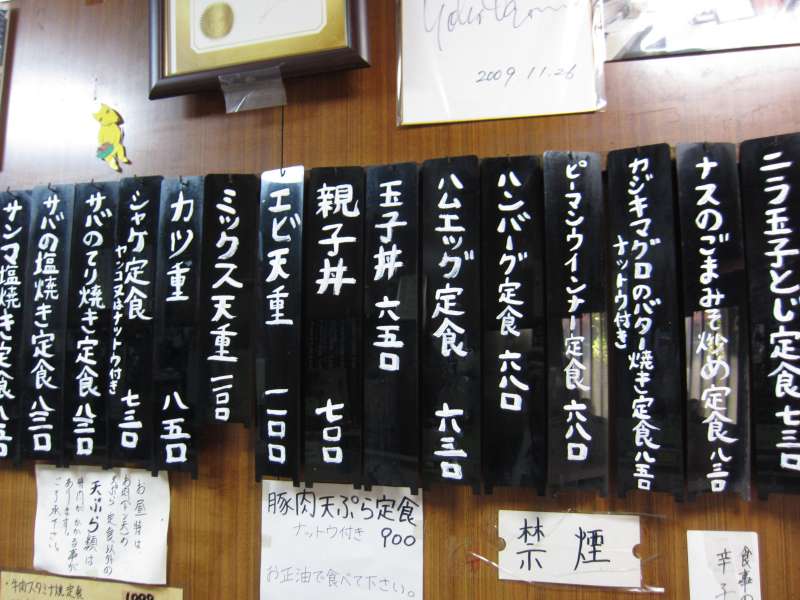 2009.11.26
ニラ玉子とじ定食 七三〇
ナスのごまみそ炒め定食 八三〇
カジキマグロのバター焼き定食 八五〇
ナットウ付き
ピーマンウインナー定食 六八〇
ハンバーグ定食 六八〇
ハムエッグ定食 六三〇
玉子丼 六五〇
親子丼 七〇〇
エビ天重 一一〇〇
ミックス天重 一一〇〇
カツ重 八五〇
シャケ定食 七三〇
ヤッコ又はナットウ付き
サバのてり焼き定食 八三〇
サバの塩焼き定食 八三〇
サンマ塩焼き定食 八五〇
食事の
辛子
禁煙
豚肉天ぷら定食
ナットウ付き 900
お正油で食べて下さい。
お昼時は
天ぷら定食以外の
天ぷら類は
時間がかかる事が
あります。
ご了承下さい。
・牛肉スタミナ焼定食